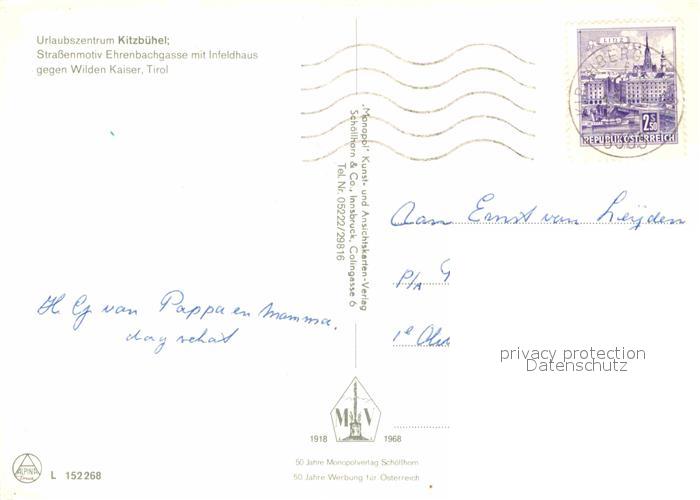 Urlaubszentrum Kitzbühel;
Straßenmotiv Ehrenbachgasse mit Infeldhaus
gegen Wilden Kaiser, Tirol
LINZ
2.50
REPUBLIK ÖSTERREICH
„Monopol" Kunst- und Ansichtskarten-Verlag
Schöllhorn & Co., Innsbruck, Colingasse 6
Tel. Nr. 05222/29816
Aan Ernst van Leijden
P/A
1e
H Gr van Pappa en Mamma.
dag schat
privacy protection
Datenschutz
M V
1918 1968
50 Jahre Monopolverlag Schöllhorn
50 Jahre Werbung für Österreich
ALPINA
L 152268